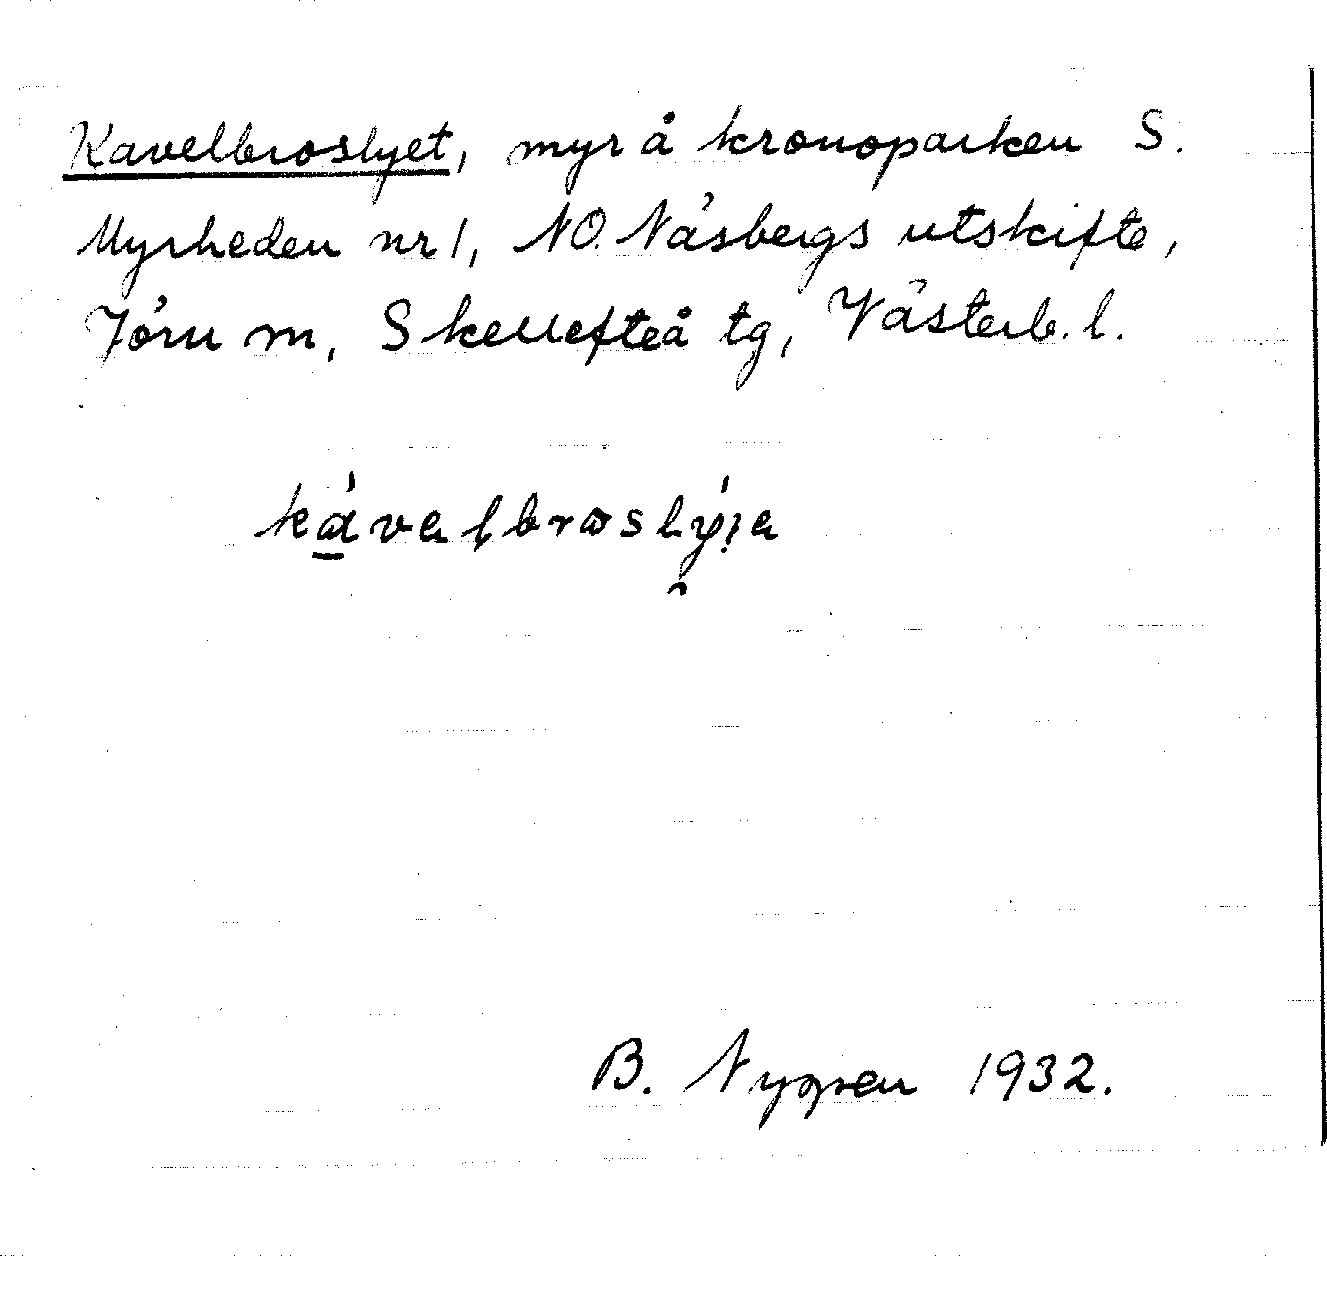 Kavelbroslyet, myr å kronoparken S.
Myrheden nr 1, NO. Näsbergs utskifte,
Jörn sn, Skellefteå tg, Västerb. l.
kávalbroslýja
B. Nyman 1932.